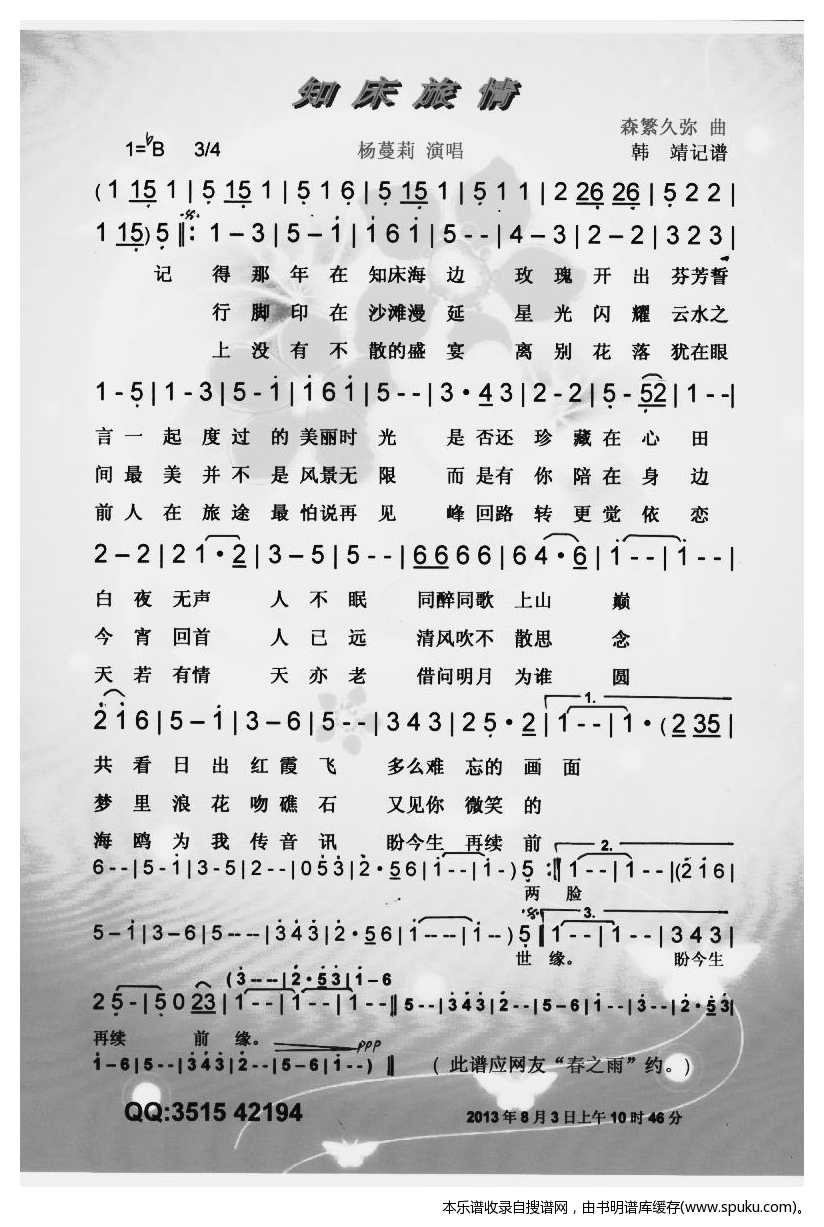 知床旅情
森繁久弥 曲
1=♭B 3/4 杨蔓莉 演唱 韩 靖记谱
(1 15 1 | 5 15 1 | 5 1 6 | 5 15 1 | 5 1 1 | 2 26 26 | 5 2 2 |
1 15) 5 ‖: 1 – 3 | 5 – 1 | 1 6 1 | 5 - - | 4 – 3 | 2 – 2 | 3 2 3 |
记 得 那 年 在 知床海 边 玫 瑰 开 出 芬芳誓
行 脚 印 在 沙滩漫 延 星 光 闪 耀 云水之
上 没 有 不 散的盛 宴 离 别 花 落 犹在眼
1 - 5 | 1 - 3 | 5 - 1 | 1 6 1 | 5 - - | 3 · 4 3 | 2 - 2 | 5 - 52 | 1 - - |
言 一 起 度 过 的 美丽时 光 是 否还 珍 藏 在 心 田
间 最 美 并 不 是 风景无 限 而 是有 你 陪 在 身 边
前 人 在 旅 途 最 怕说再 见 峰 回路 转 更 觉 依 恋
2 – 2 | 2 1 · 2 | 3 – 5 | 5 - - | 6 6 6 6 | 6 4 · 6 | 1 - - | 1 - - |
白 夜 无声 人 不 眠 同醉同歌 上山 巅
今 宵 回首 人 已 远 清风吹不 散思 念
天 若 有情 天 亦 老 借问明月 为谁 圆
1.
2 1 6 | 5 – 1 | 3 – 6 | 5 - - | 3 4 3 | 2 5 · 2 | 1 - - | 1 · (2 35 |
共 看 日 出 红 霞 飞 多么难 忘的 画 面
梦 里 浪 花 吻 礁 石 又见你 微笑 的
海 鸥 为 我 传 音 讯 盼今生 再续 前
2.
6 - - | 5 - 1 | 3 - 5 | 2 - - | 0 5 3 | 2 · 5 6 | 1 - - | 1 - ) 5 :‖ 1 - - | 1 - - | (2 1 6 |
两 脸
3.
5 – 1 | 3 – 6 | 5 - - - | 3 4 3 | 2 · 5 6 | 1 - - - | 1 - - ) 5 ‖ 1 - - | 1 - - | 3 4 3 |
世 缘。 盼今生
(3 - - - | 2 · 5 3 | 1 – 6
2 5 - | 5 0 23 | 1 - - | 1 - - | 1 - - ‖ 5 - - | 3 4 3 | 2 - - | 5 – 6 | 1 - - | 3 - - | 2 · 5 3 |
再续 前 缘。 ppp
1 – 6 | 5 - - | 3 4 3 | 2 - - | 5 – 6 | 1 - - ) ‖ (此谱应网友“春之雨”约。)
QQ:3515 42194 2013 年 8 月 3 日上午 10 时 46 分
本乐谱收录自搜谱网，由书明谱库缓存(www.spuku.com)。